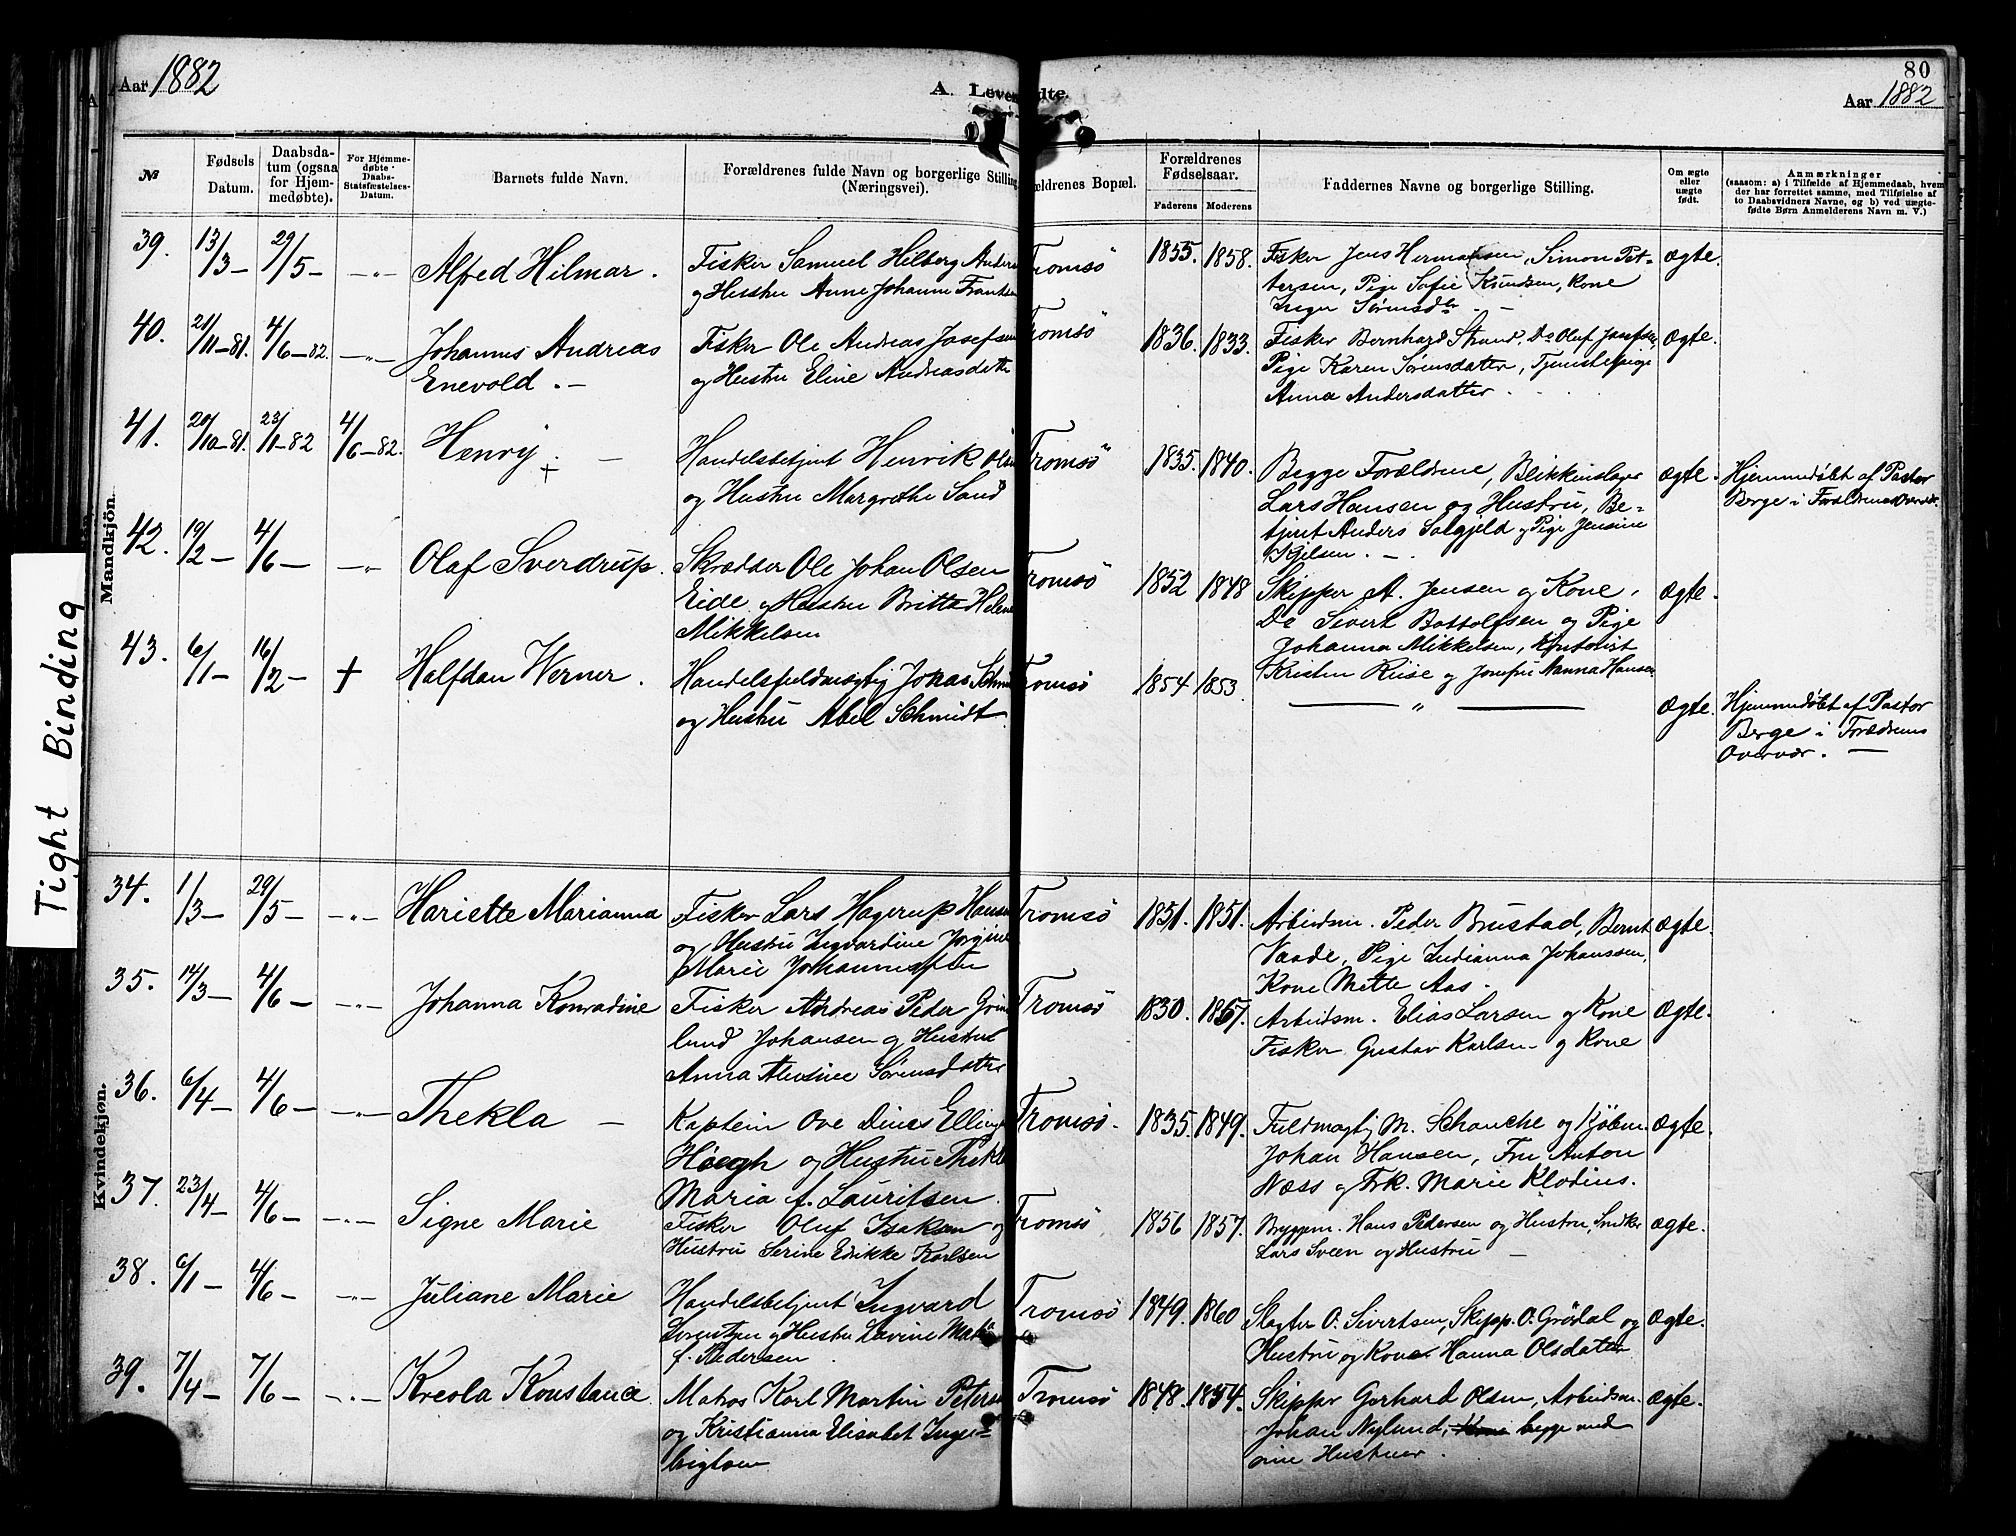 Aar 1882
A. Leven dte.
80
Aar 1882
№
Fødsels Datum.
Daabsdatum (ogsaa for Hjemmedøbte).
For Hjemmedøbte Daabs-Statsfæstelses-Datum.
Barnets fulde Navn.
Forældrenes fulde Navn og borgerlige Stilling (Næringsvei).
ældrenes Bopæl.
Forældrenes Fødselsaar.
Faderens
Moderens
Faddernes Navne og borgerlige Stilling.
Om ægte eller uægte født.
Anmærkninger
(saasom: a) i Tilfælde af Hjemmedaab, hvem
der har forrettet samme, med Tilføielse af
to Daabsvidners Navne, og b) ved uægte-
fødte Børn Anmelderens Navn m. V.)
Tight Binding
Mandkjön.
39. 13/3 — 29/5 — —"— Alfred Hilmar. Fisker Samuel Helberg Ander
og Hustru Anne Johanne Frants
Tromsö 1855. 1858. Fisker Jens Hermansen, Simon Pet-
tersen, Pige Sofie Knudsen, Kone
Inger Sörensdr — ægte.
40. 21/11—81. 4/6—82. —"— Johannes Andreas
Enevold. — Fisker Ole Andreas Josefsen
og Hustru Eline Andreasdatte
Tromsö 1836. 1833. Fisker Bernhard Strand, Do Oluf Josefsen,
Pige Karen Sörensdatter, Tjenestepige
Anna Andersdatter. ægte.
41. 20/10—81. 23/1—82 4/6—82. Henry. + — Handelsbetjent Henrik Ols
og Hustru Margrethe Sand
Tromsö 1835. 1840. Begge Forældrene, Blikkenslager
Lars Hansen og Hustru, Be-
tjent Anders Solgjeld og Pige Jensine
Kjelsen. — ægte. Hjemmedöbt af Pastor
Berge i Forældrenes Overvær.
42. 19/2 — 4/6 — —"— Olaf Sverdrup. Skrædder Ole Johan Olsen
Eide og Hustru Britta Helene
Mikkelsen
Tromsö 1852 1848 Skipper A. Jensen og Kone,
Do Sivert Bottolfsen og Pige
Johanna Mikkelsen, Kontorist
Kristen Riise og Josefine Nanna Hansen ægte.
43. 6/1 — 16/2 — + Halfdan Werner. Handelsfuldmægtig Johas Schmi
og Hustru Abel Schmidt
Tromsö 1854 1853. — " — ægte. Hjemmedöbt af Pastor
Berge i Forældrenes
Overvær. —
Kvindekjøn.
34. 1/3 — 29/5 — —"— Hariette Marianna Fisker Lars Hagerup Hansen
og Hustru Ingvardine Jørgine
Marie Johannesen
Tromsö 1851. 1851. Arbeidsm. Peder Brustad, Bernt
Vaade, Pige Indianna Johanssen,
Kone Mette Aas. ægte.
35. 14/3 — 4/6 — —"— Johanna Konradine Fisker Andreas Peder Grön
lund Johansen og Hustru
Anna Alevine Sörensdatter
Tromsö 1830. 1857. Arbeidsm. Elias Larsen og Kone
Fisker Gustav Karlsen og Kone ægte.
36. 6/4 — 4/6 — —"— Thekla — Kaptein Ove Dines Elling
Höegh og Hustru Thekla
Maria f. Lauritsen
Tromsö. 1835. 1849. Fuldmægtig M. Schanche og Kjöbm.
Johan Hansen, Fru Anton
Næss og Frk. Marie Klodius. ægte.
37. 23/4 — 4/6 — —"— Signe Marie Fisker Oluf Isaksen og
Hustru Serine Erikke Karlsen
Tromsö 1856 1857. Bryggem. Hans Pedersen og Hustru, Snedker
Lars Sveen og Hustru — ægte.
38. 6/1 — 4/6 — —"— Juliane Marie Handelsbetjent Ingvard
Lorentzen og Hustru Lavine Mat
f. Pedersen
Tromsö 1849. 1860 Slagter O. Sivertsen, Skipp. O. Grödal og
Hustru og Kone Hanna Olsdatter ægte.
39. 7/4 — 7/6 — —"— Kreola Konstance Matros Karl Martin Peters
og Kristianna Elisabet Inge-
brigtsen
Tromsö 1848. 1854. Skipper Gerhard Olsen, Arbeidsm.
Johan Nylund, Kone begge med
sine Hustruer. ægte.